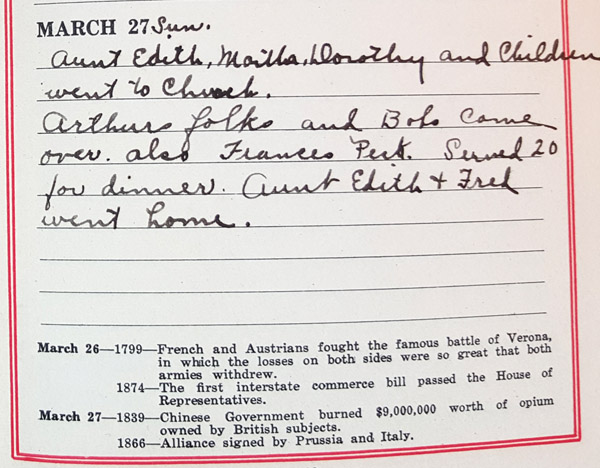 MARCH 27 Sun.
Aunt Edith, Martha, Dorothy and Children
went to Church.
Arthurs folks and Bobs came
over. also Frances Peck. Served 20
for dinner. Aunt Edith & Fred
went home.
March 26—1799—French and Austrians fought the famous battle of Verona,
in which the losses on both sides were so great that both
armies withdrew.
1874—The first interstate commerce bill passed the House of
Representatives.
March 27—1839—Chinese Government burned $9,000,000 worth of opium
owned by British subjects.
1866—Alliance signed by Prussia and Italy.